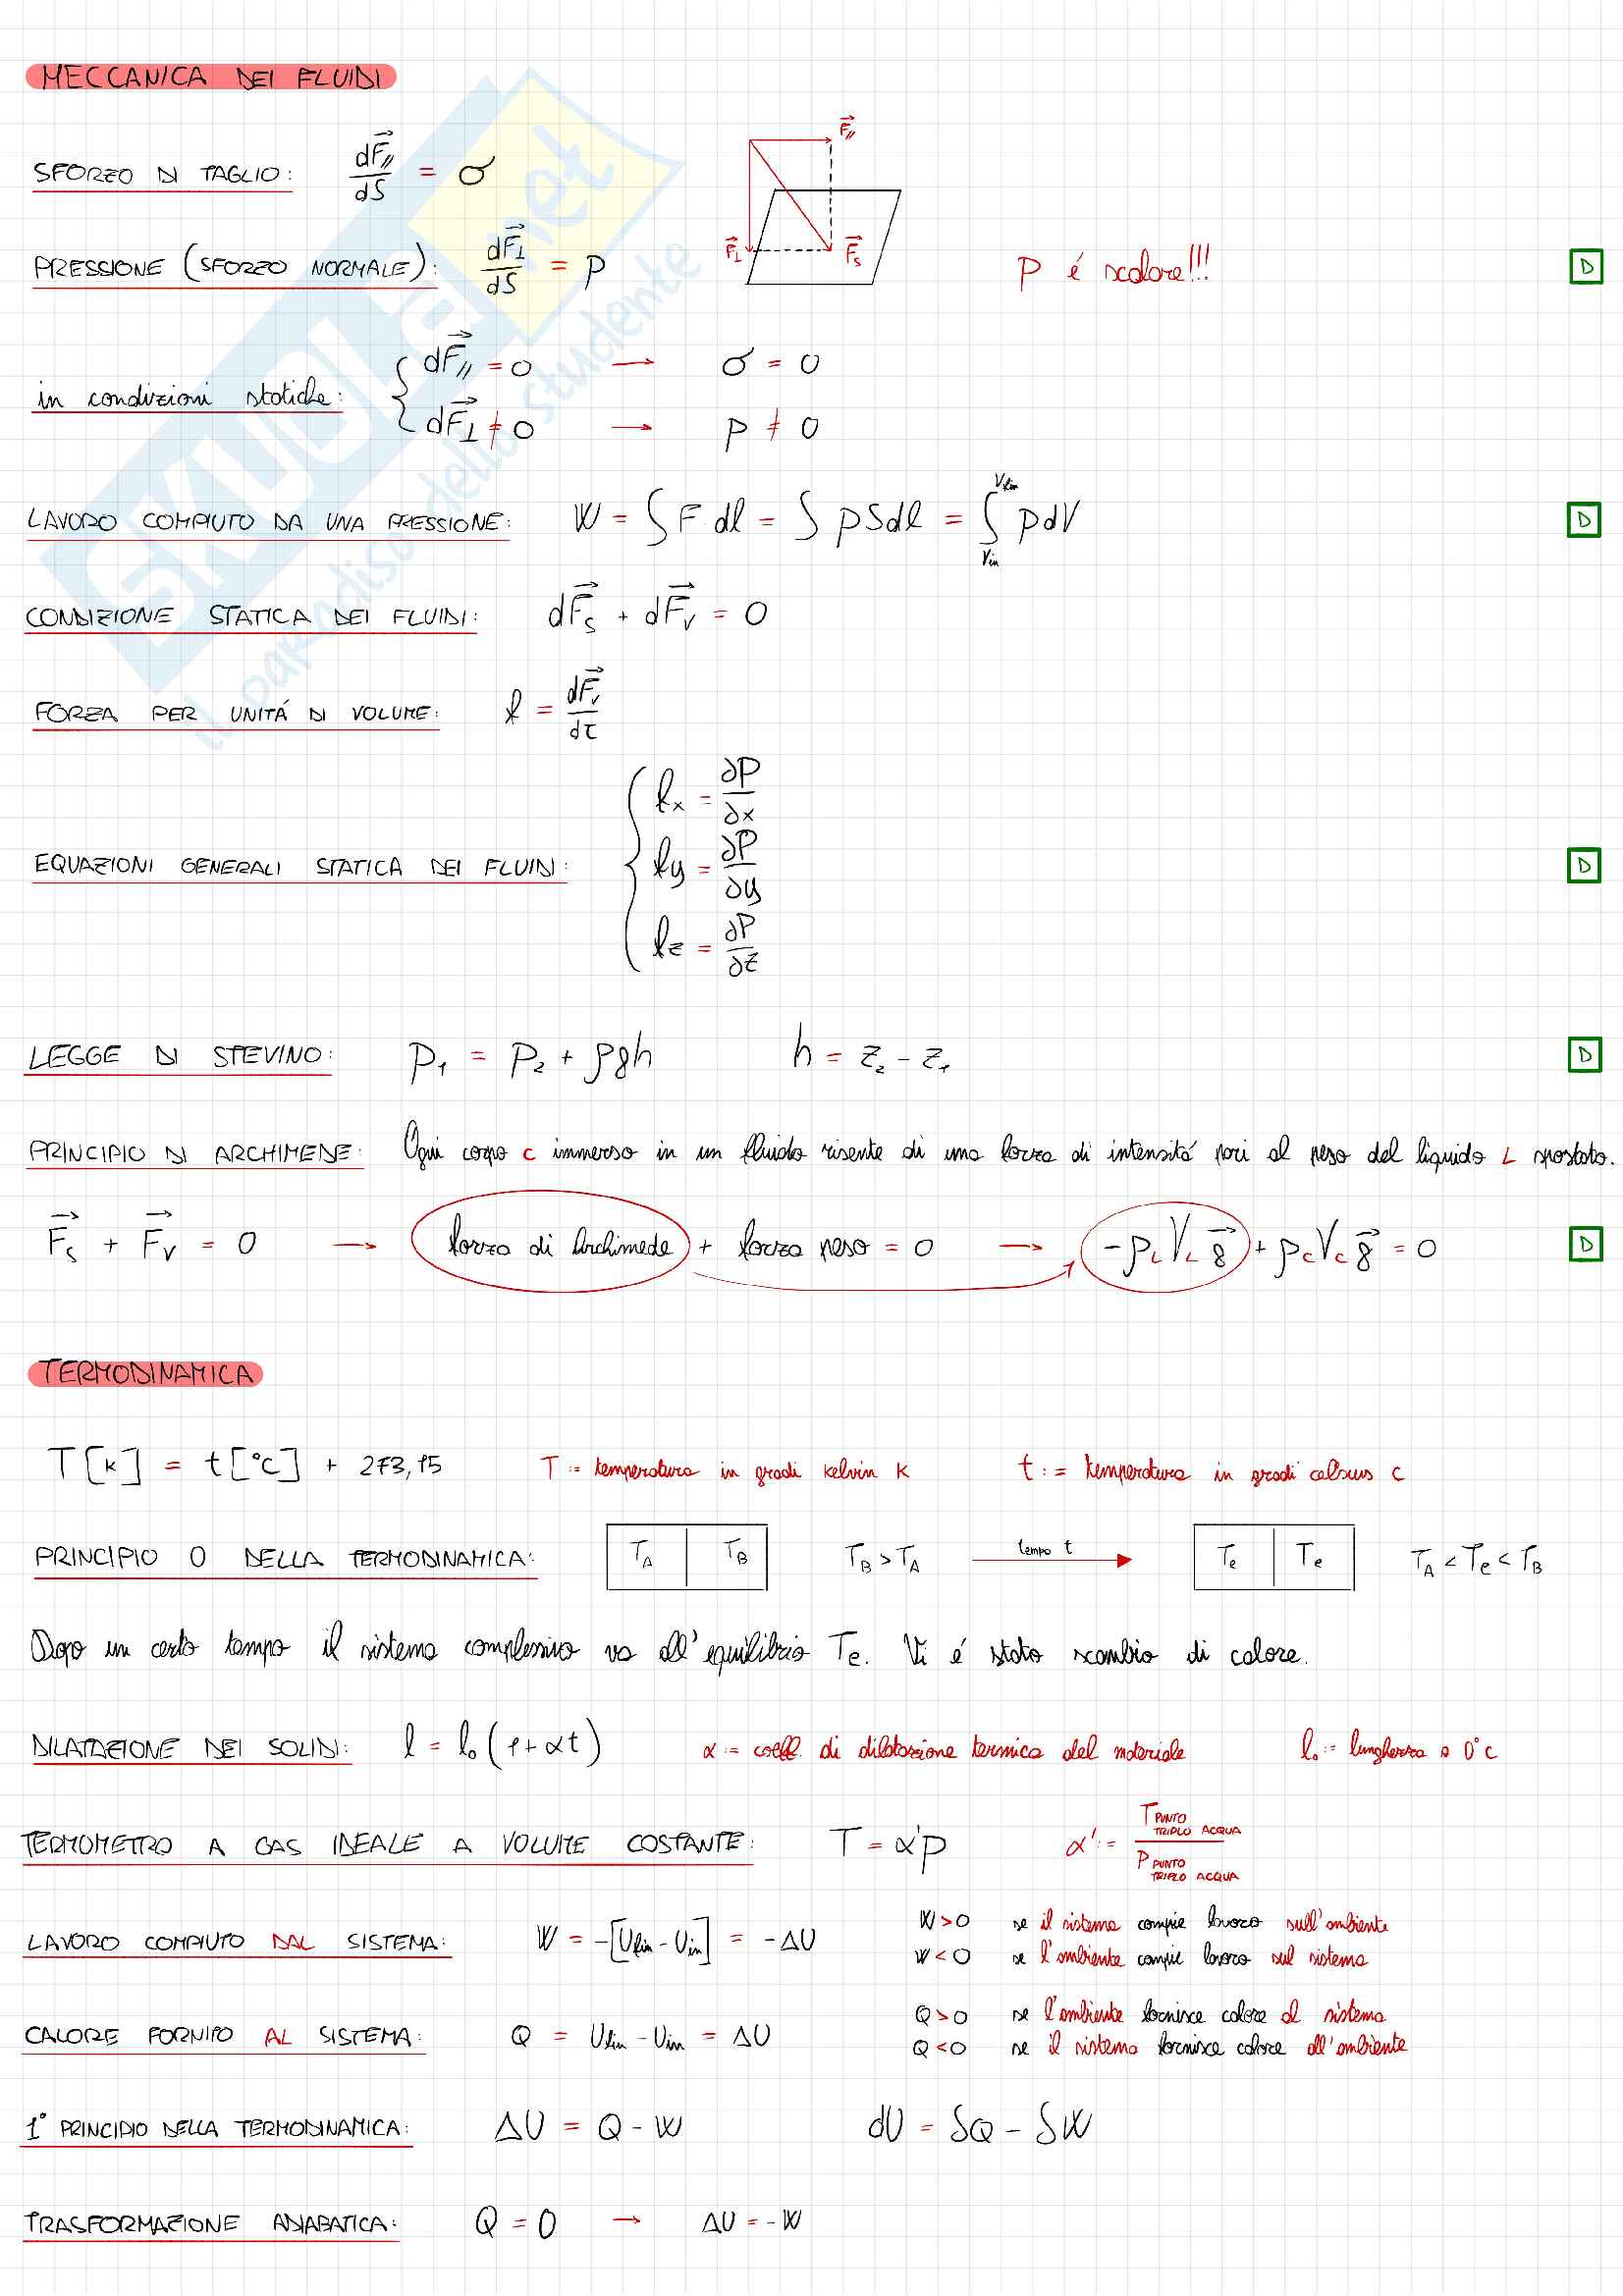 MECCANICA DEI FLUIDI
SFORZO DI TAGLIO: dF⃗∥/dS = σ
F⃗∥
F⃗⊥ F⃗s
PRESSIONE (SFORZO NORMALE): dF⃗⊥/dS = p P é scalare!!! D
in condizioni statiche: { dF⃗∥ = 0 → σ = 0
dF⃗⊥ ≠ 0 → p ≠ 0
LAVORO COMPIUTO DA UNA PRESSIONE: W = ∫ F dl = ∫ pSdl = ∫_Vin^Vfin p dV D
CONDIZIONE STATICA DEI FLUIDI: dF⃗s + dF⃗v = 0
FORZA PER UNITÁ DI VOLUME: f = dF⃗v/dτ
EQUAZIONI GENERALI STATICA DEI FLUIDI: { fx = ∂P/∂x
fy = ∂P/∂y D
fz = ∂P/∂z
LEGGE DI STEVINO: p₁ = p₂ + ρgh h = z₂ - z₁ D
PRINCIPIO DI ARCHIMEDE: Ogni corpo c immerso in un fluido risente di una forza di intensitá pari al peso del liquido L spostato.
F⃗s + F⃗v = 0 → forza di Archimede + forza peso = 0 → -ρL VL g⃗ + ρc Vc g⃗ = 0 D
TERMODINAMICA
T[k] = t[°C] + 273,15 T := temperatura in gradi kelvin K t := temperatura in gradi celsius C
PRINCIPIO 0 DELLA TERMODINAMICA: TA TB TB > TA tempo t Te Te TA < Te < TB
Dopo un certo tempo il sistema complessivo va all'equilibrio Te. Vi é stato scambio di calore.
DILATAZIONE DEI SOLIDI: l = l₀ (1+αt) α := coeff. di dilatazione termica del materiale l₀ := lunghezza a 0°C
TERMOMETRO A GAS IDEALE A VOLUME COSTANTE: T = α'p α' := T PUNTO TRIPLO ACQUA / P PUNTO TRIPLO ACQUA
LAVORO COMPIUTO DAL SISTEMA: W = -[Ufin - Uin] = -ΔU W > 0 se il sistema compie lavoro sull'ambiente
W < 0 se l'ambiente compie lavoro sul sistema
CALORE FORNITO AL SISTEMA: Q = Ufin - Uin = ΔU Q > 0 se l'ambiente fornisce calore al sistema
Q < 0 se il sistema fornisce calore all'ambiente
1° PRINCIPIO DELLA TERMODINAMICA: ΔU = Q - W dU = δQ - δW
TRASFORMAZIONE ADIABATICA: Q = 0 → ΔU = -W
SKUOLA.net
il paradiso dello studente